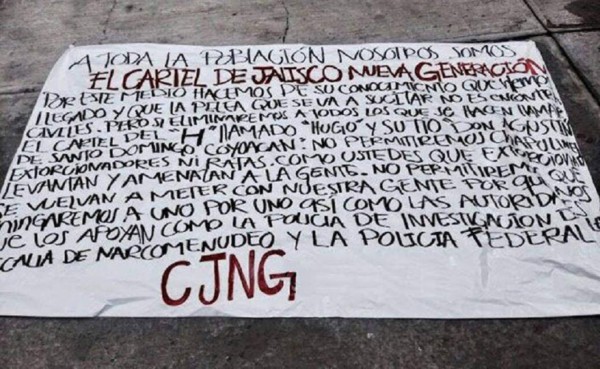 A TODA LA POBLACIÓN NOSOTROS SOMOS
EL CARTEL DE JAISCO NUEVA GENERACIÓN
POR ESTE MEDIO HACEMOS DE SU CONOCIMIENTO QUE HEMO
LLEGADO Y QUE LA PELEA QUE SE VA A SUCITAR NO ES
CIVILES. PERO SI ELIMINAREMOS A TODOS LOS QUE SE HACEN LLAMAR
EL CARTEL DEL "H" LLAMADO "HUGO" Y SU TIO DON AGUSTIN
DE SANTO DOMINGO, COYOACAN: NO PERMITIREMOS
EXTORCIONADORES NI RATAS. COMO USTEDES QUE
LEVANTAN Y AMENATAN A LA GENTE. NO PERMITIREMOS QUE
SE VUELVAN A METER CON NUESTRA GENTE POR
MINGAREMOS A UNO POR UNO ASÍ COMO LAS AUTORIDADES
UE LOS APOYAN COMO LA POLICIA DE INVESTIGACION
SCALIA DE NARCOMENUDEO Y LA POLICIA FEDERAL
CJNG